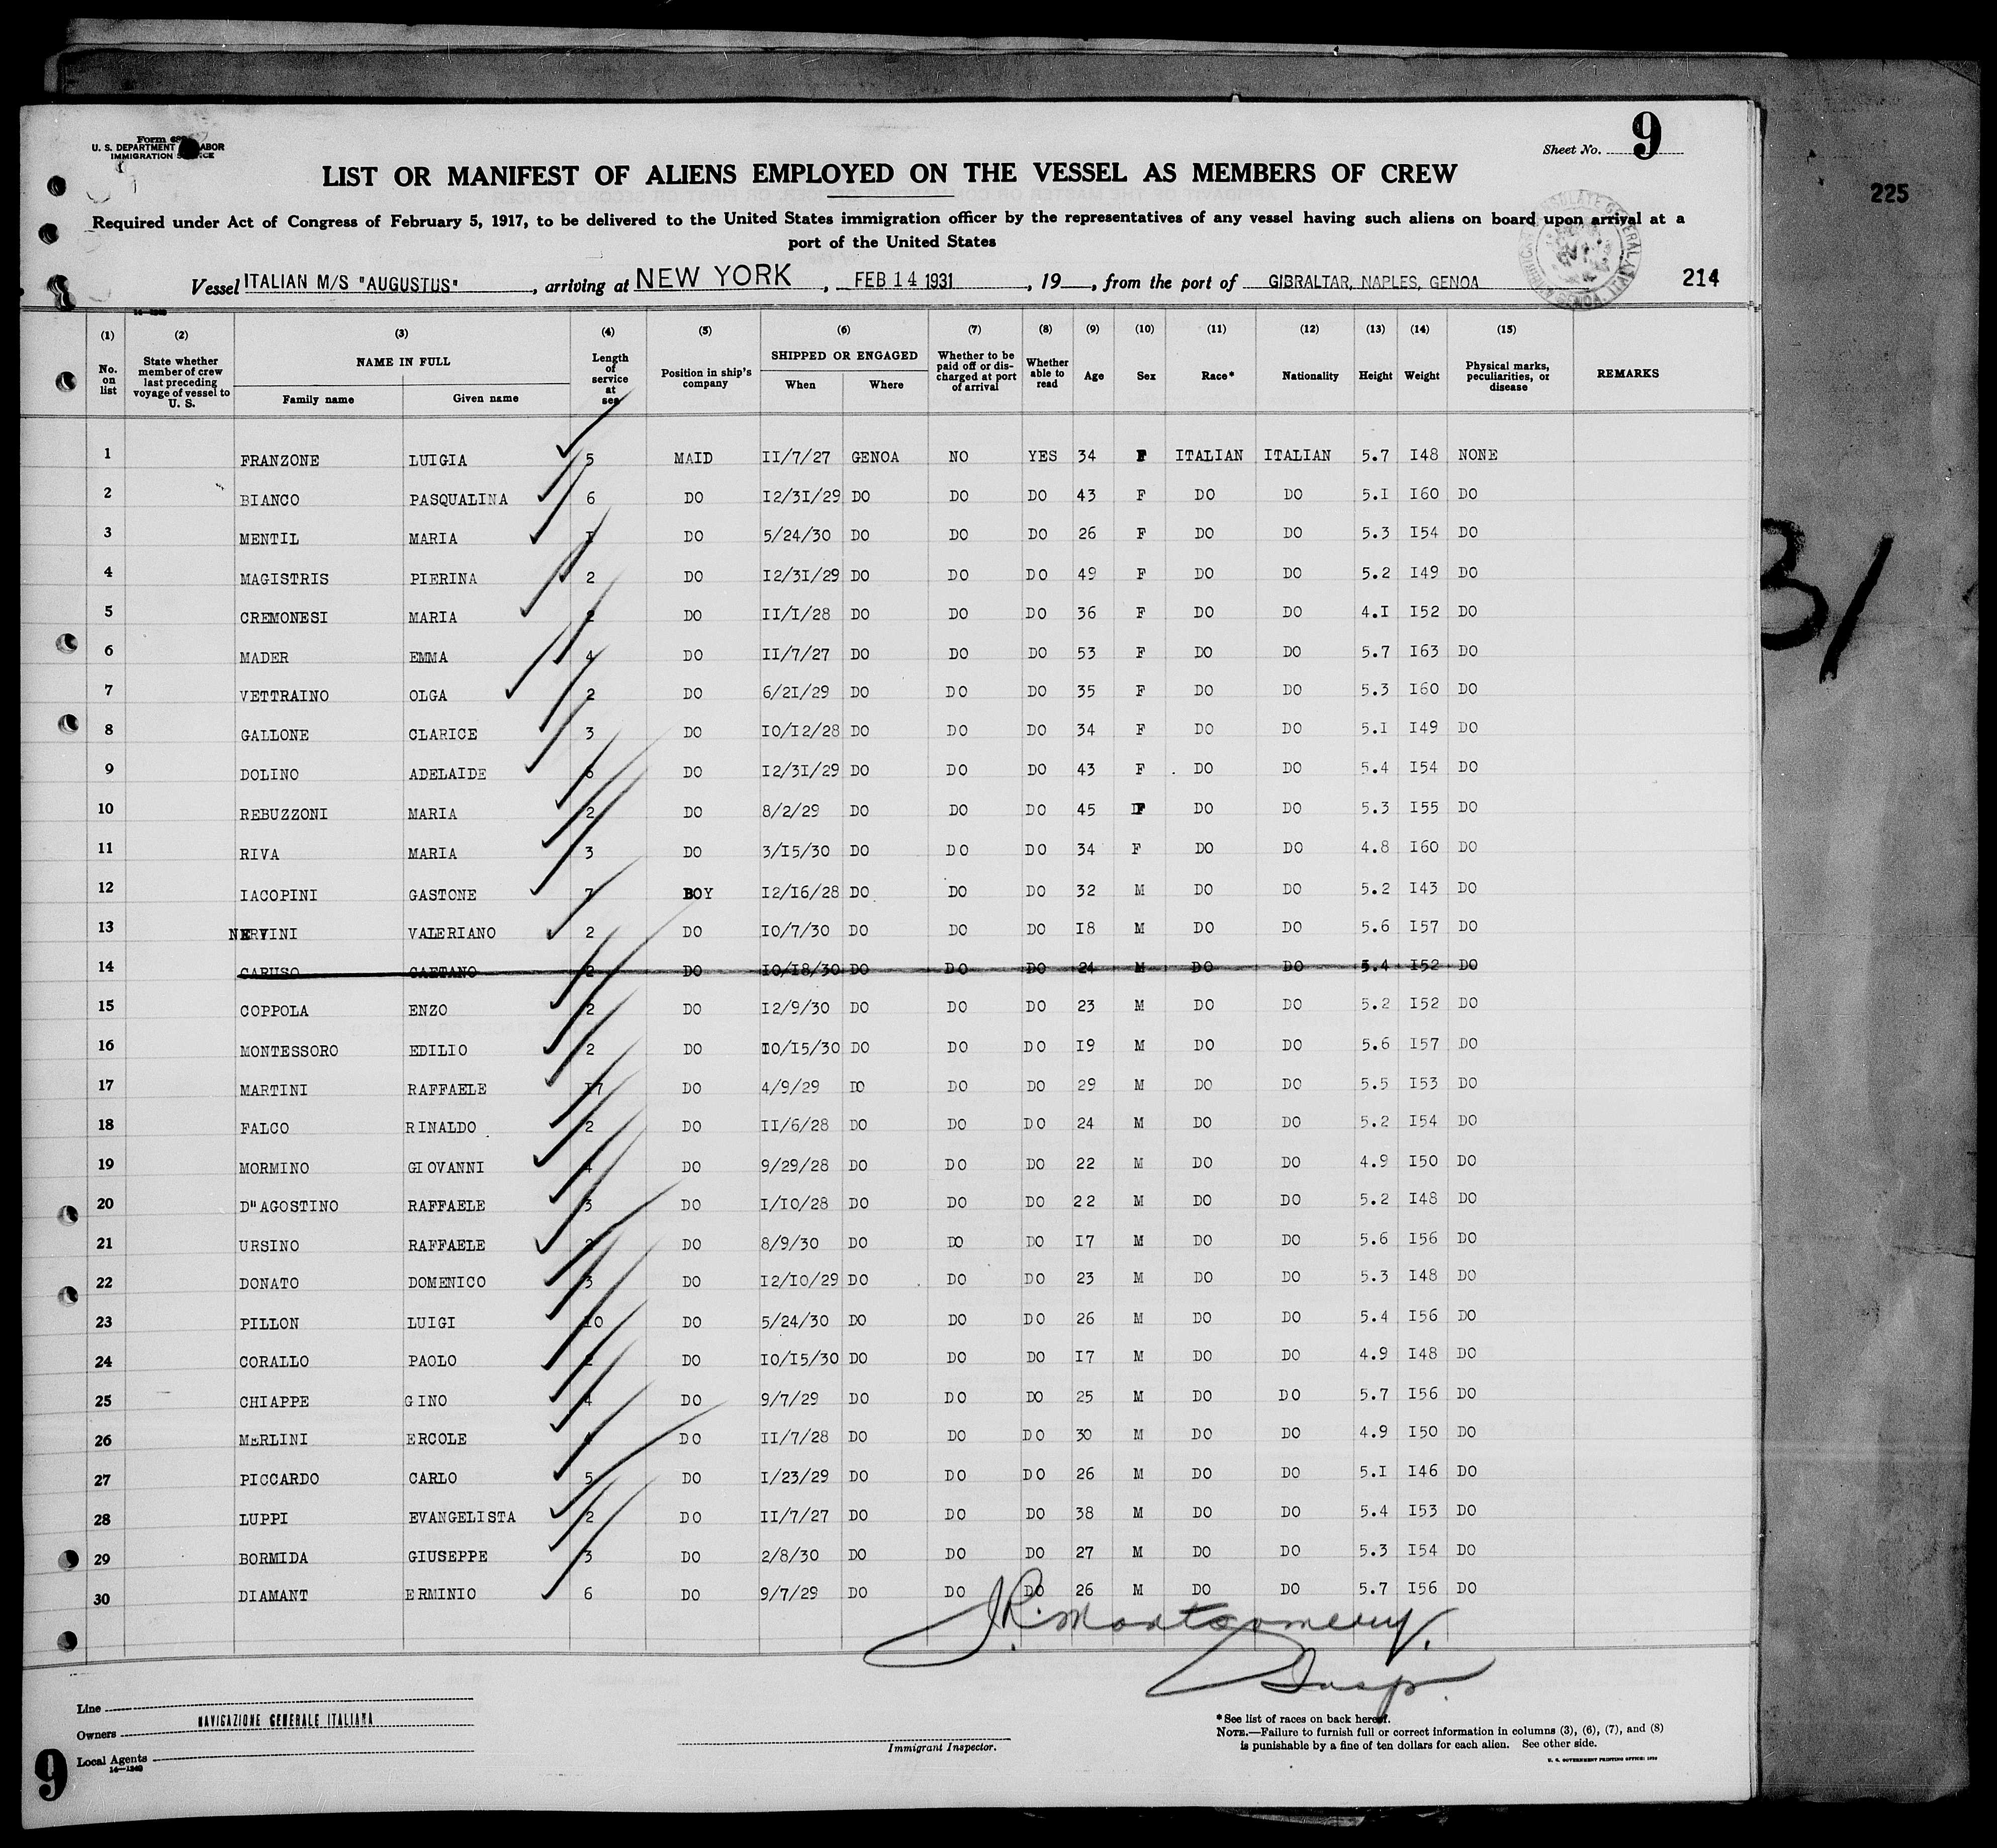 225
Form 68
U. S. DEPARTMENT ABOR
IMMIGRATION
Sheet No. 9
LIST OR MANIFEST OF ALIENS EMPLOYED ON THE VESSEL AS MEMBERS OF CREW
Required under Act of Congress of February 5, 1917, to be delivered to the United States immigration officer by the representatives of any vessel having such aliens on board upon arrival at a
port of the United States
Vessel ITALIAN M/S "AUGUSTUS" , arriving at NEW YORK , FEB 14 1931 , 19 , from the port of GIBRALTAR, NAPLES, GENOA 214
(1) (2) (3) (4) (5) (6) (7) (8) (9) (10) (11) (12) (13) (14) (15)
No. on list State whether member of crew last preceding voyage of vessel to U. S. NAME IN FULL Family name Given name Length of service at sea Position in ship's company SHIPPED OR ENGAGED When Where Whether to be paid off or discharged at port of arrival Whether able to read Age Sex Race* Nationality Height Weight Physical marks, peculiarities, or disease REMARKS
1 FRANZONE LUIGIA 5 MAID II/7/27 GENOA NO YES 34 F ITALIAN ITALIAN 5.7 I48 NONE
2 BIANCO PASQUALINA 6 DO I2/3I/29 DO DO DO 43 F DO DO 5.I I60 DO
3 MENTIL MARIA I DO 5/24/30 DO DO DO 26 F DO DO 5.3 I54 DO
4 MAGISTRIS PIERINA 2 DO I2/3I/29 DO DO DO 49 F DO DO 5.2 I49 DO
5 CREMONESI MARIA 2 DO II/I/28 DO DO DO 36 F DO DO 4.I I52 DO
6 MADER EMMA 4 DO II/7/27 DO DO DO 53 F DO DO 5.7 I63 DO
7 VETTRAINO OLGA 2 DO 6/2I/29 DO DO DO 35 F DO DO 5.3 I60 DO
8 GALLONE CLARICE 3 DO IO/I2/28 DO DO DO 34 F DO DO 5.I I49 DO
9 DOLINO ADELAIDE 6 DO I2/3I/29 DO DO DO 43 F DO DO 5.4 I54 DO
10 REBUZZONI MARIA 2 DO 8/2/29 DO DO DO 45 F DO DO 5.3 I55 DO
11 RIVA MARIA 3 DO 3/I5/30 DO DO DO 34 F DO DO 4.8 I60 DO
12 IACOPINI GASTONE 7 BOY I2/I6/28 DO DO DO 32 M DO DO 5.2 I43 DO
13 NERVINI VALERIANO 2 DO IO/7/30 DO DO DO I8 M DO DO 5.6 I57 DO
14 CARUSO GAETANO 2 DO IO/I8/30 DO DO DO 24 M DO DO 5.4 I52 DO
15 COPPOLA ENZO 2 DO I2/9/30 DO DO DO 23 M DO DO 5.2 I52 DO
16 MONTESSORO EDILIO 2 DO IO/I5/30 DO DO DO I9 M DO DO 5.6 I57 DO
17 MARTINI RAFFAELE I7 DO 4/9/29 DO DO DO 29 M DO DO 5.5 I53 DO
18 FALCO RINALDO 2 DO II/6/28 DO DO DO 24 M DO DO 5.2 I54 DO
19 MORMINO GIOVANNI 4 DO 9/29/28 DO DO DO 22 M DO DO 4.9 I50 DO
20 D"AGOSTINO RAFFAELE 3 DO I/IO/28 DO DO DO 22 M DO DO 5.2 I48 DO
21 URSINO RAFFAELE DO 8/9/30 DO DO DO I7 M DO DO 5.6 I56 DO
22 DONATO DOMENICO 3 DO I2/IO/29 DO DO DO 23 M DO DO 5.3 I48 DO
23 PILLON LUIGI IO DO 5/24/30 DO DO DO 26 M DO DO 5.4 I56 DO
24 CORALLO PAOLO DO IO/I5/30 DO DO DO I7 M DO DO 4.9 I48 DO
25 CHIAPPE GINO 4 DO 9/7/29 DO DO DO 25 M DO DO 5.7 I56 DO
26 MERLINI ERCOLE DO II/7/28 DO DO DO 30 M DO DO 4.9 I50 DO
27 PICCARDO CARLO 5 DO I/23/29 DO DO DO 26 M DO DO 5.I I46 DO
28 LUPPI EVANGELISTA 2 DO II/7/27 DO DO DO 38 M DO DO 5.4 I53 DO
29 BORMIDA GIUSEPPE 3 DO 2/8/30 DO DO DO 27 M DO DO 5.3 I54 DO
30 DIAMANT ERMINIO 6 DO 9/7/29 DO DO DO 26 M DO DO 5.7 I56 DO
J.R. Montgomery.
Insp.
Line
Owners NAVIGAZIONE GENERALE ITALIANA
Local Agents
14—1240
Immigrant Inspector.
*See list of races on back hereof.
NOTE.—Failure to furnish full or correct information in columns (3), (6), (7), and (8)
is punishable by a fine of ten dollars for each alien. See other side.
U. S. GOVERNMENT PRINTING OFFICE:
9
31